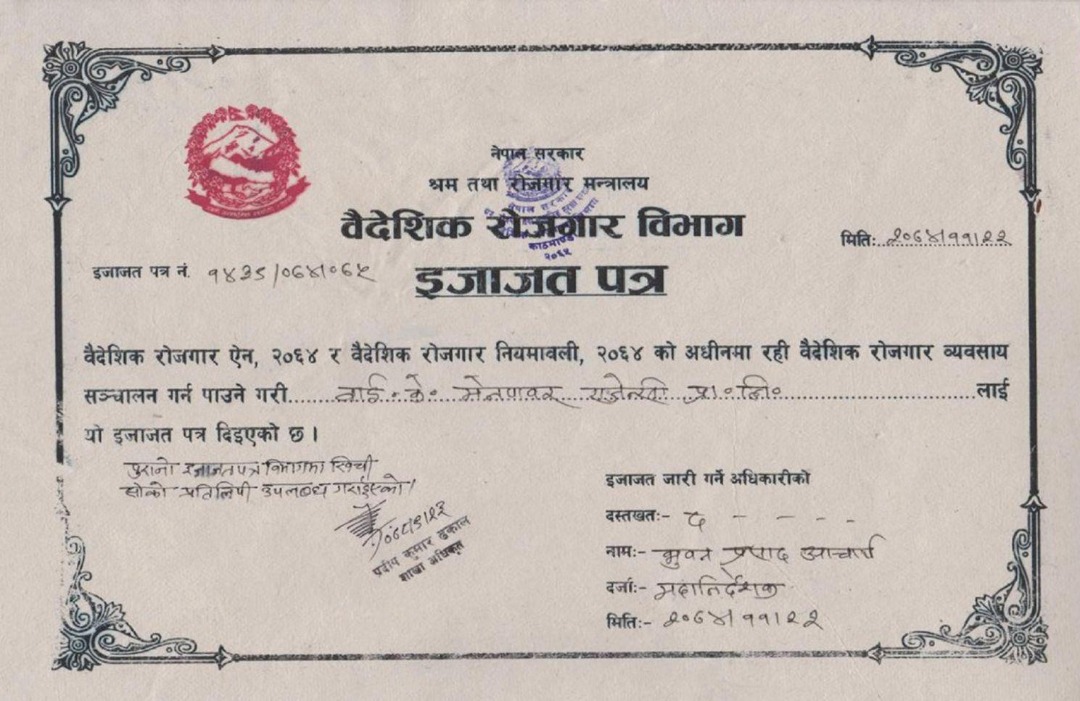 नेपाल सरकार
श्रम तथा रोजगार मन्त्रालय
वैदेशिक रोजगार विभाग
मितिः २०६४।११।२२
इजाजत पत्र नं. १४३५/०६४।०६५
इजाजत पत्र
वैदेशिक रोजगार ऐन, २०६४ र वैदेशिक रोजगार नियमावली, २०६४ को अधीनमा रही वैदेशिक रोजगार व्यवसाय
सञ्चालन गर्न पाउने गरी वाई॰ के॰ मेनपावर एजेन्सी प्रा॰ लि॰ लाई
यो इजाजत पत्र दिइएको छ ।
पुरानो इजाजतपत्र विभागमा खिची
सोको प्रतिलिपी उपलब्ध गराईएको।
प्रदीप कुमार ढकाल
शाखा अधिकृत
इजाजत जारी गर्ने अधिकारीको
दस्तखतः- द - - - -
नामः- भुवन प्रसाद आचार्य
दर्जाः- महानिर्देशक
मितिः- २०६४।११।२२
काठमाण्डौ